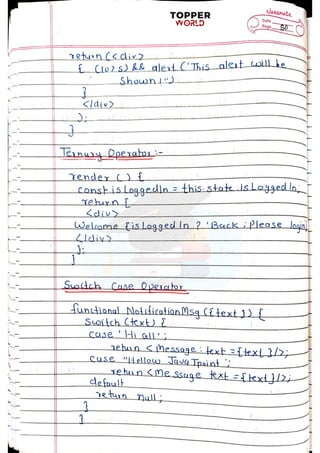 TOPPER
WORLD
classmate
Date
Page 50
return (<div>
{ (10>5) && alert ('This alert will be
Shown!')
}
</div>
);
}
Ternary Operator :-
render () {
const isLoggedIn = this.state.isLoggedIn,
return [
<div>
Welcome {isLoggedIn ? 'Back : Please login
</div>
);
}
Switch Case Operator
functional NotificationMsg ({text}) {
Switch (text) {
case 'Hi all' :
return <Message : text = {text}/>;
case "Hellow Java Tpoint' ;
return <Message text = {text}/>;
default
return null ;
}
}